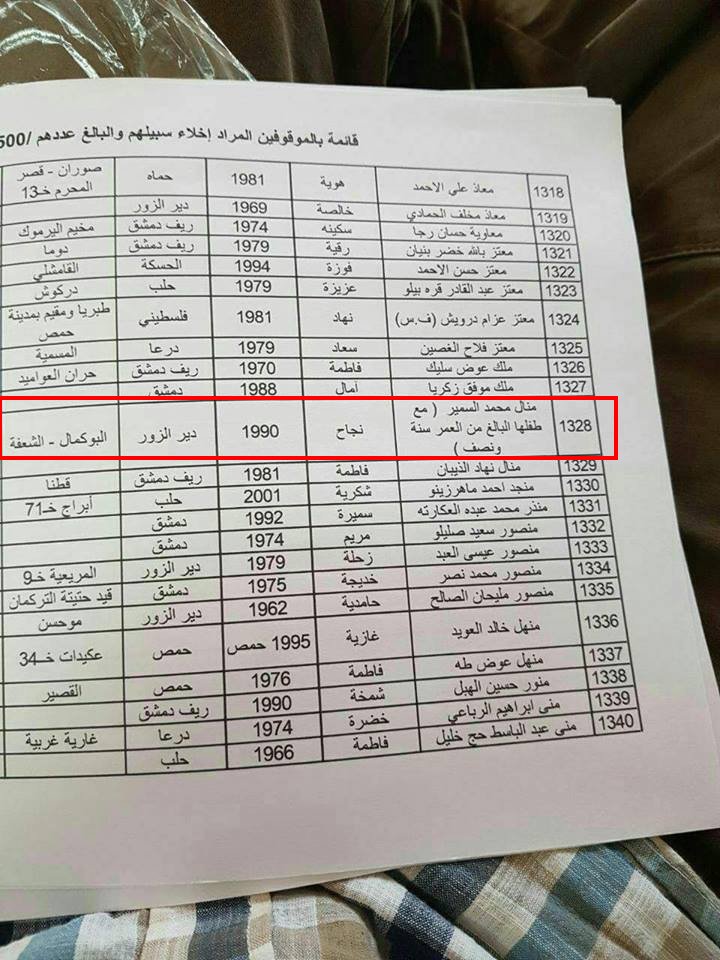 قائمة بالموقوفين المراد إخلاء سبيلهم والبالغ عددهم /500
1318 معاذ علي الاحمد هوية 1981 حماه صوران - قصر
المحرم خـ13
1319 معاذ مخلف الحمادي خالصة 1969 دير الزور
1320 معاوية حسان رجا سكينه 1974 ريف دمشق مخيم اليرموك
1321 معتز بالله خضر بنيان رقية 1979 ريف دمشق دوما
1322 معتز حسن الاحمد فوزة 1994 الحسكة القامشلي
1323 معتز عبد القادر قره بيلو عزيزة 1979 حلب دركوش
1324 معتز عزام درويش (ف.س) نهاد 1981 فلسطيني طبريا ومقيم بمدينة
حمص
1325 معتز فلاح الغصين سعاد 1979 درعا المسمية
1326 ملك عوض سليك فاطمة 1970 ريف دمشق حران العواميد
1327 ملك موفق زكريا آمال 1988 دمشق
1328 منال محمد السمير ( مع
طفلها البالغ من العمر سنة
ونصف ) نجاح 1990 دير الزور البوكمال - الشعفة
1329 منال نهاد الذيبان فاطمة 1981 ريف دمشق قطنا
1330 منجد احمد ماهرزينو شكرية 2001 حلب أبراج خـ71
1331 منذر محمد عبده العكارته سميرة 1992 دمشق
1332 منصور سعيد صليلو مريم 1974 دمشق
1333 منصور عيسى العبد زحلة 1979 دير الزور المريعية خـ9
1334 منصور محمد نصر خديجة 1975 دمشق قيد حتيتة التركمان
1335 منصور مليحان الصالح حامدية 1962 دير الزور موحسن
1336 منهل خالد العويد غازية 1995 حمص حمص عكيدات خـ34
1337 منهل عوض طه فاطمة 1976 حمص القصير
1338 منور حسين الهبل شمخة 1990 ريف دمشق
1339 منى ابراهيم الرباعي خضرة 1974 درعا غارية غربية
1340 منى عبد الباسط حج خليل فاطمة 1966 حلب